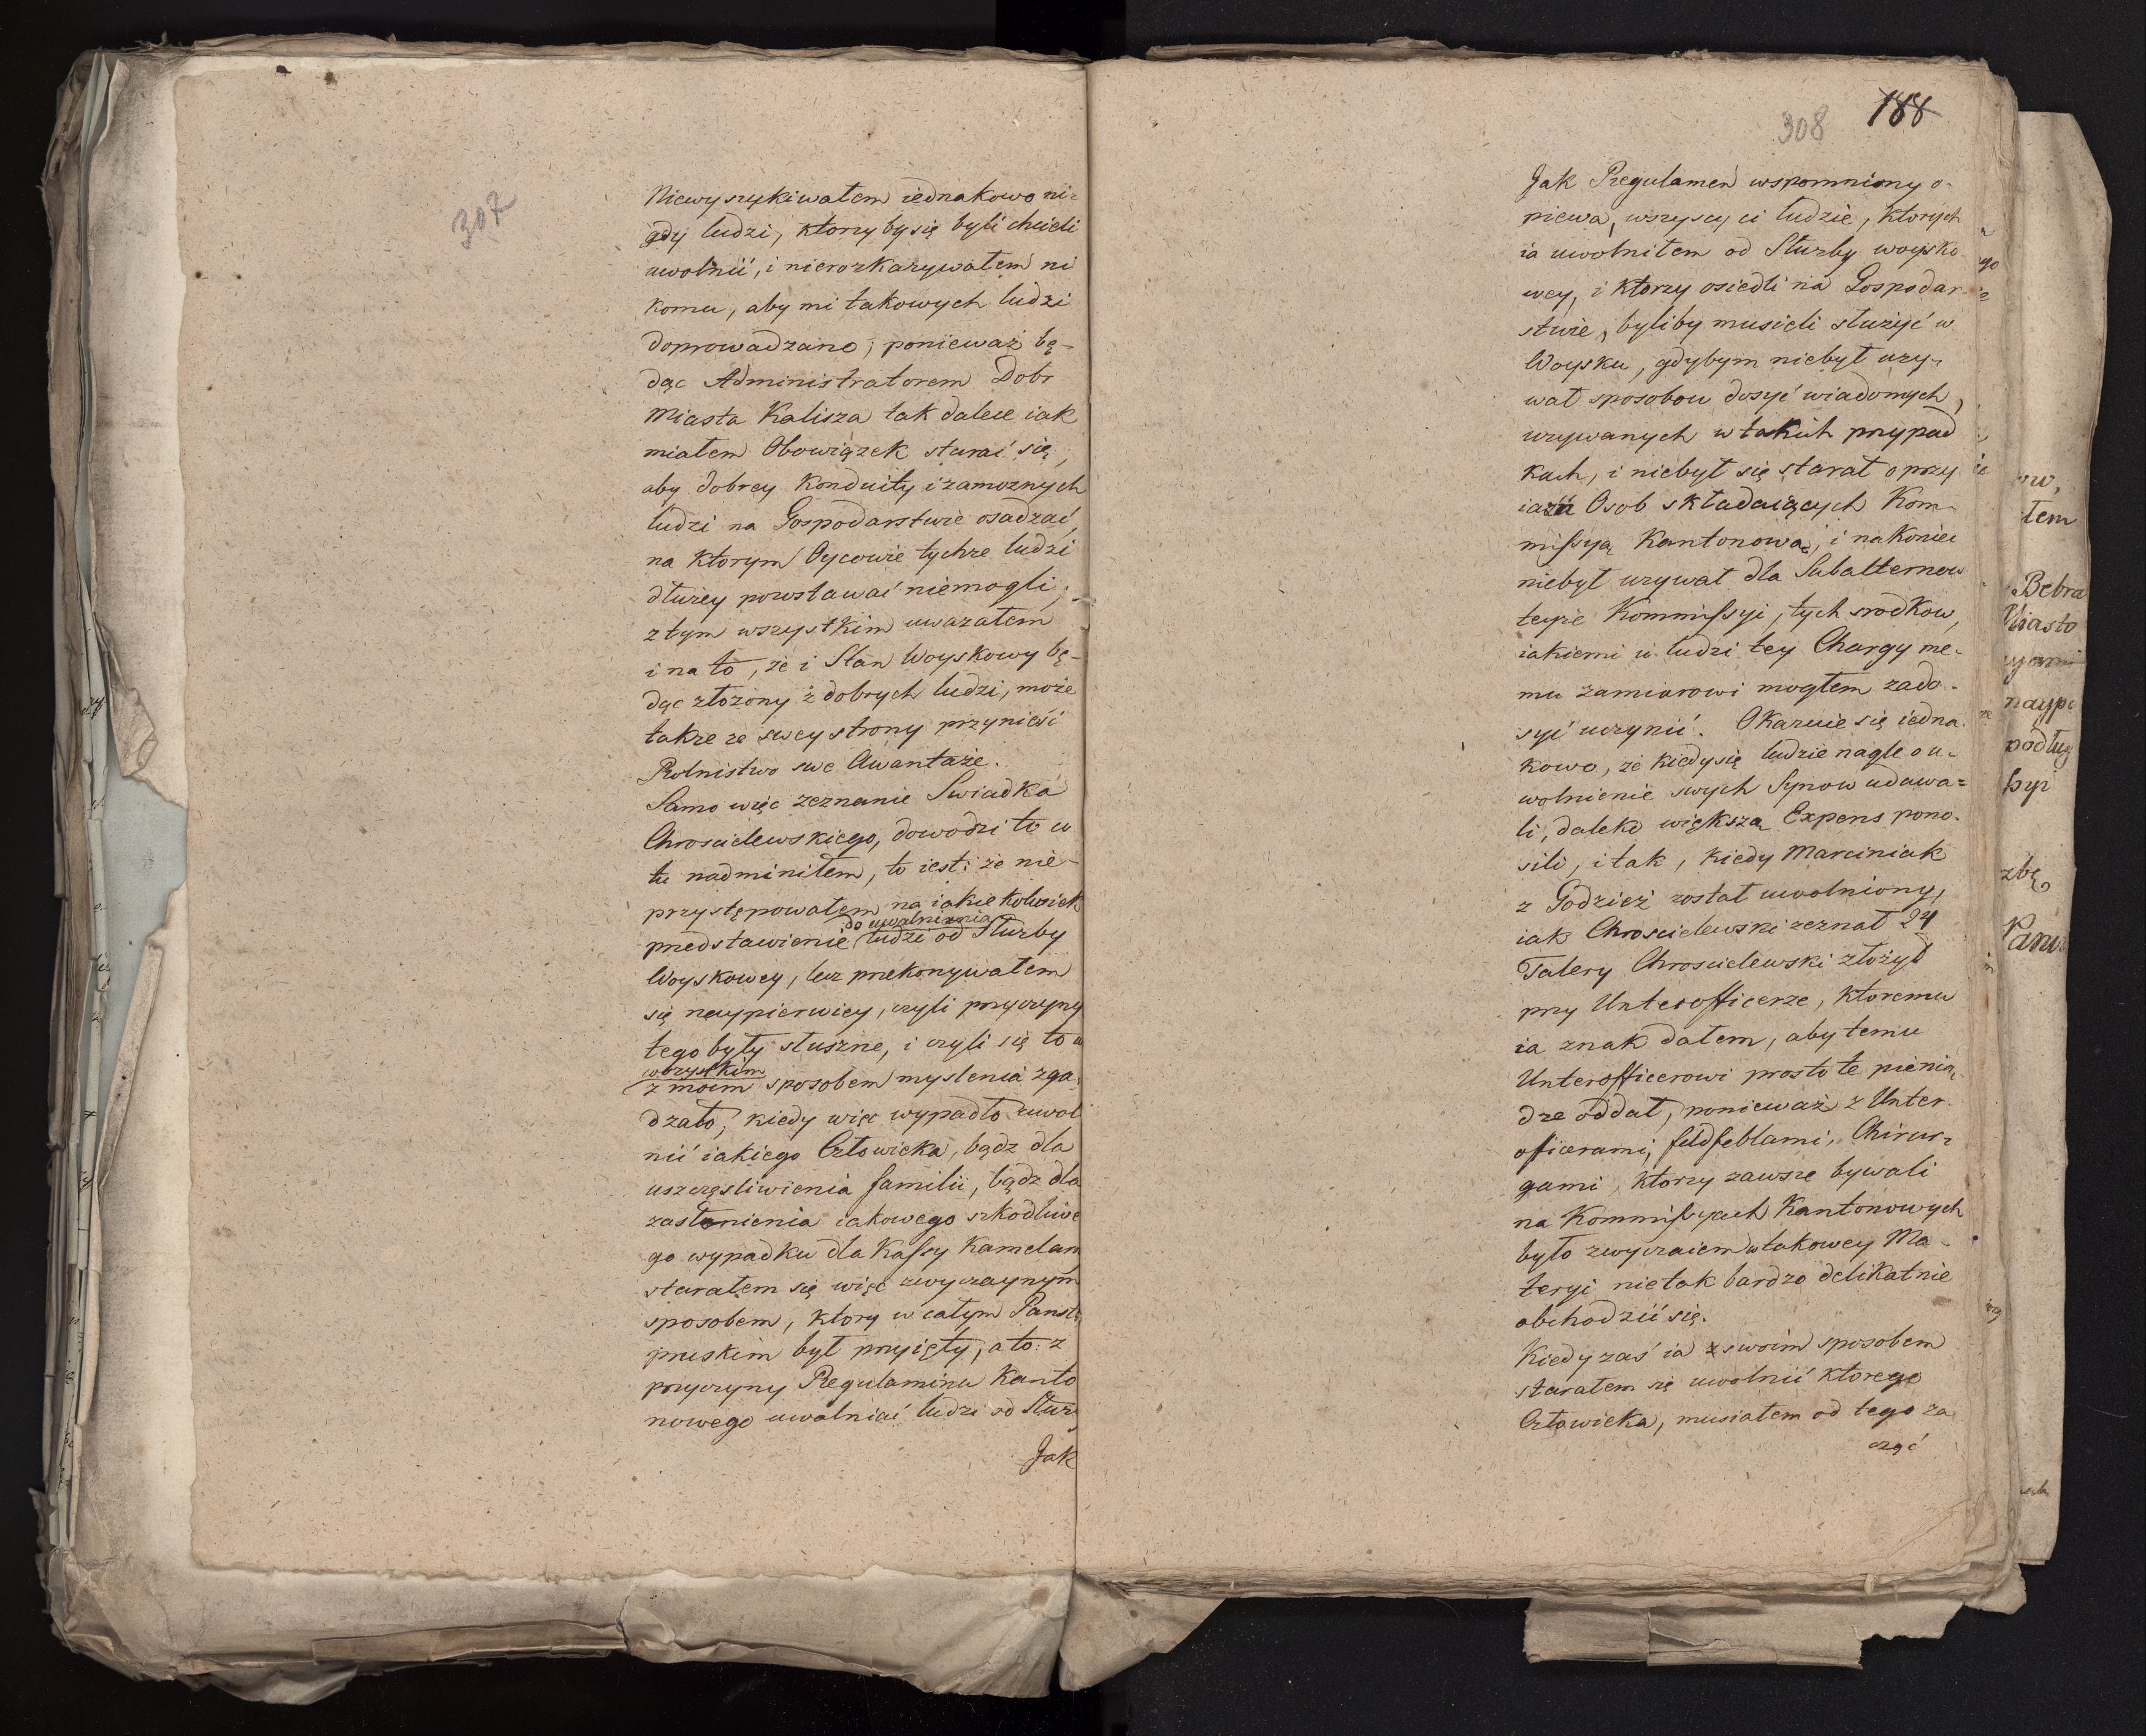 307
Niewyszykiwałem iednakowo ni=
gdy ludzi, ktorzy by się byli chcieli
uwolnić, i nierozkazywałem ni
komu, aby mi takowych ludzi
doprowadzano; ponieważ bę-
dąc Administratorem Dobr
Miasta Kalisza tak dalece iak
miałem Obowiązek starać się,
aby dobrey Konduity i zamoznych
ludzi na Gospodarstwie osadzać,
na ktorym Oycowie tychze ludzi
dłuzey powstawać niemogli;
z tym wszystkim uwazałem
i na to, że i Stan Woyskowy bę-
dąc złozony z dobrych ludzi, może
takze ze swey strony przynieść
Rolnistwo swe Awantaże.
Samo więc zeznanie Swiadka
Chroscielewskiego, dowodzi to co
tu nadminiłem, to iest: że nie-
przystępowałem na iakiekolwiek
do uwalniania
przedstawienie ludzi od Służby
Woyskowey, lecz przekonywałem
się naypierwiey, czyli przyczyny
tego były słuszne, i czyli się to w
wszystkim
z moim sposobem myslenia zga
dzało; kiedy więc wypadło uwol
nić iakiego Człowieka, bądz dla
uszczęsliwienia familii, bądz dla
zasłonienia iakowego szkodliwe
go wypadku dla Kassy Kamelarn
starałem się więc zwyczaynym
sposobem, ktory w całym Panst
pruskim był przyięty, a to: z
przyczyny Regulaminu Kanto
nowego uwalniać ludzi od Służ
Jak
308 188
Jak Regulamen wspomniony o-
piewa, wszyscy ci ludzie, ktorych
ia uwolniłem od Służby woysko
wey, i ktorzy osiedli na Gospodar
stwie, byliby musieli służyć w
Woysku, gdybym niebył uzy-
wał sposobow dosyć wiadomych,
uzywanych w takich przypad
kach, i niebył się starał o przy
iaźń Osob składaiących Kom-
missyą Kantonową, i nakoniec
niebył uzywał dla Subalternow
teyże Kommissyi, tych srodkow,
iakiemi u ludzi tey Chargy me-
mu zamiarowi mogłem zado-
syć uczynić. Okazuie się iedna
kowo, że kiedy się ludzie nagle o u-
wolnienie swych Synow udawa=
li, daleko większą Expens pono-
sili, i tak, kiedy Marciniak
z Godziesz został uwolniony,
iak Chroscielewski zeznał 24
Talery Chroscielewski złożył
przy Unterofficerze, ktoremu
ia znak dałem, aby temu
Unterofficerowi prosto te pienią
dze oddał, ponieważ z Unter
officerami, feldfeblami, Chirur=
gami, ktorzy zawsze bywali
na Kommissyach Kantonowych
było zwyczaiem w takowey Ma-
teryi nie tak bardzo delikatnie
obchodzić się.
Kiedy zaś ia swoim sposobem
starałem się uwolnić ktorego
Człowieka, musiałem od tego za
cząć
Bebra
Miasto
podług